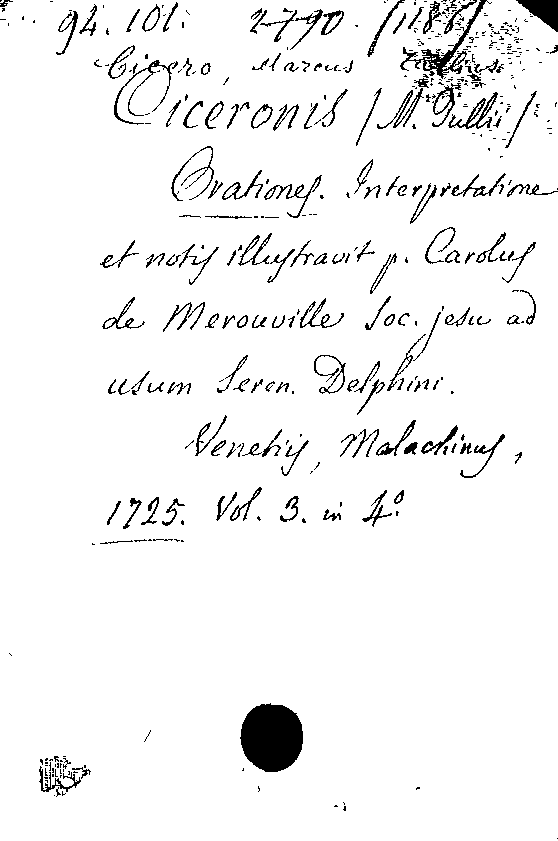 94. 101. 2790. /1186/
Cicero, Marcus Tullius
Ciceronis /M. Tullii/
Orationes. Interpretatione
et notis illustravit p. Carolus
de Merouville Soc. jesu ad
usum Seren. Delphini.
Venetiis, Malachinus,
1725. Vol. 3. in 4º